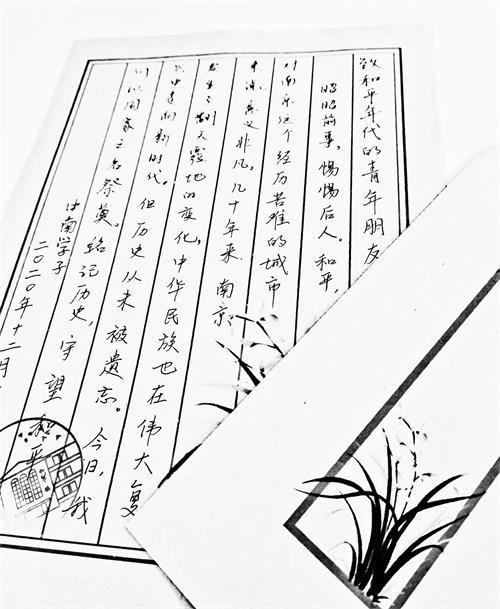 致和平年代的青年朋友
昭昭前事，惕惕后人。和平，
对南京这个经历苦难的城市
来说意义非凡，几十年来，南京
发生了翻天覆地的变化，中华民族也在伟大复
兴中走向新时代。但历史从未被遗忘。今日，我
们以国家之名祭奠。铭记历史，守望和平
中南学子
二〇二〇年十二月